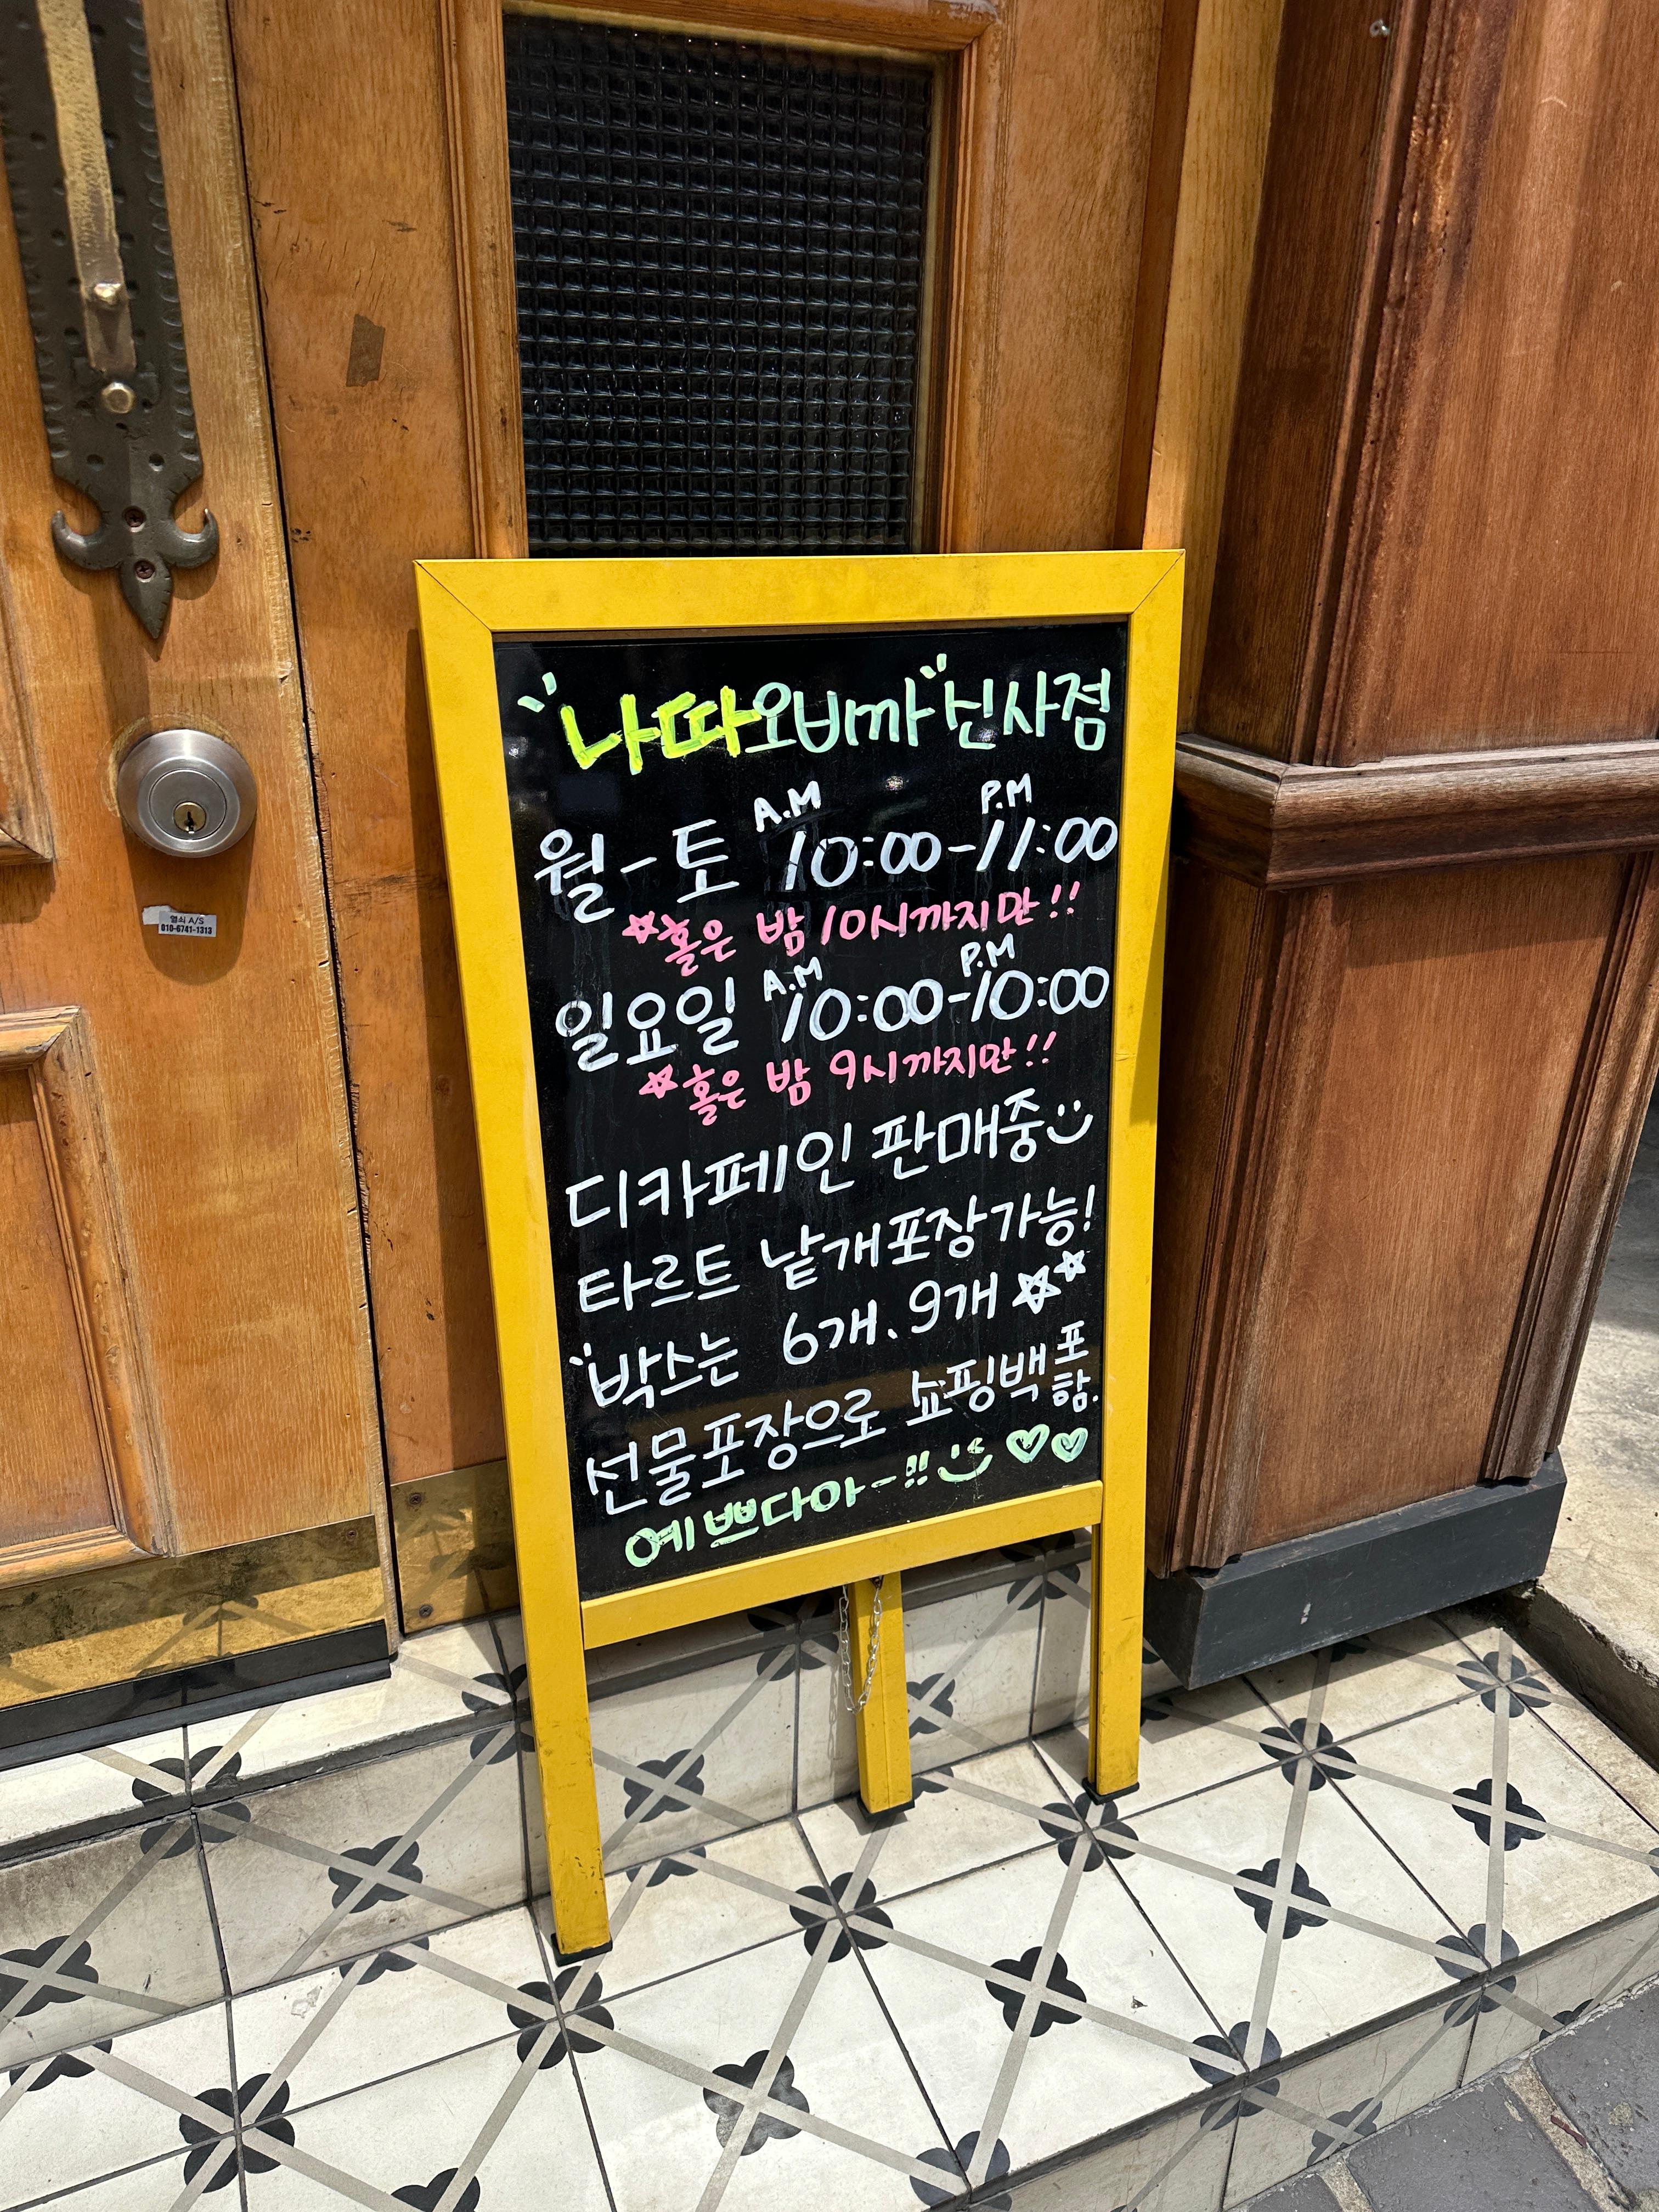 "나따오비까" 신사점
A.M P.M
월-토 10:00-11:00
☆홀은 밤 10시까지만!!
A.M P.M
일요일 10:00-10:00
☆홀은 밤 9시까지만!!
디카페인 판매중
타르트 낱개포장가능!
"박스는 6개, 9개 ☆☆
선물포장으로 쇼핑백포함.
예쁘다아-!! ♡♡
열쇠 A/S
010-6741-1313